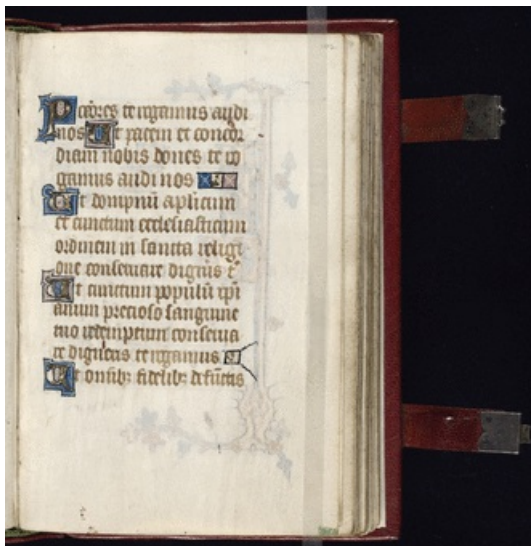 Pccōres te rogamus audi
nos Ut pacem et concor
diam nobis dones te ro
gamus audi nos
Ut dompnū aplicum
et cunctum ecclesiasticum
ordinem in sancta religi
one conseruare digneris t
Ut cunctum populū xpi
anum precioso sanguine
tuo redemptum conserua
re digneris te rogamus
Ut omībȝ fidelibȝ defūctis